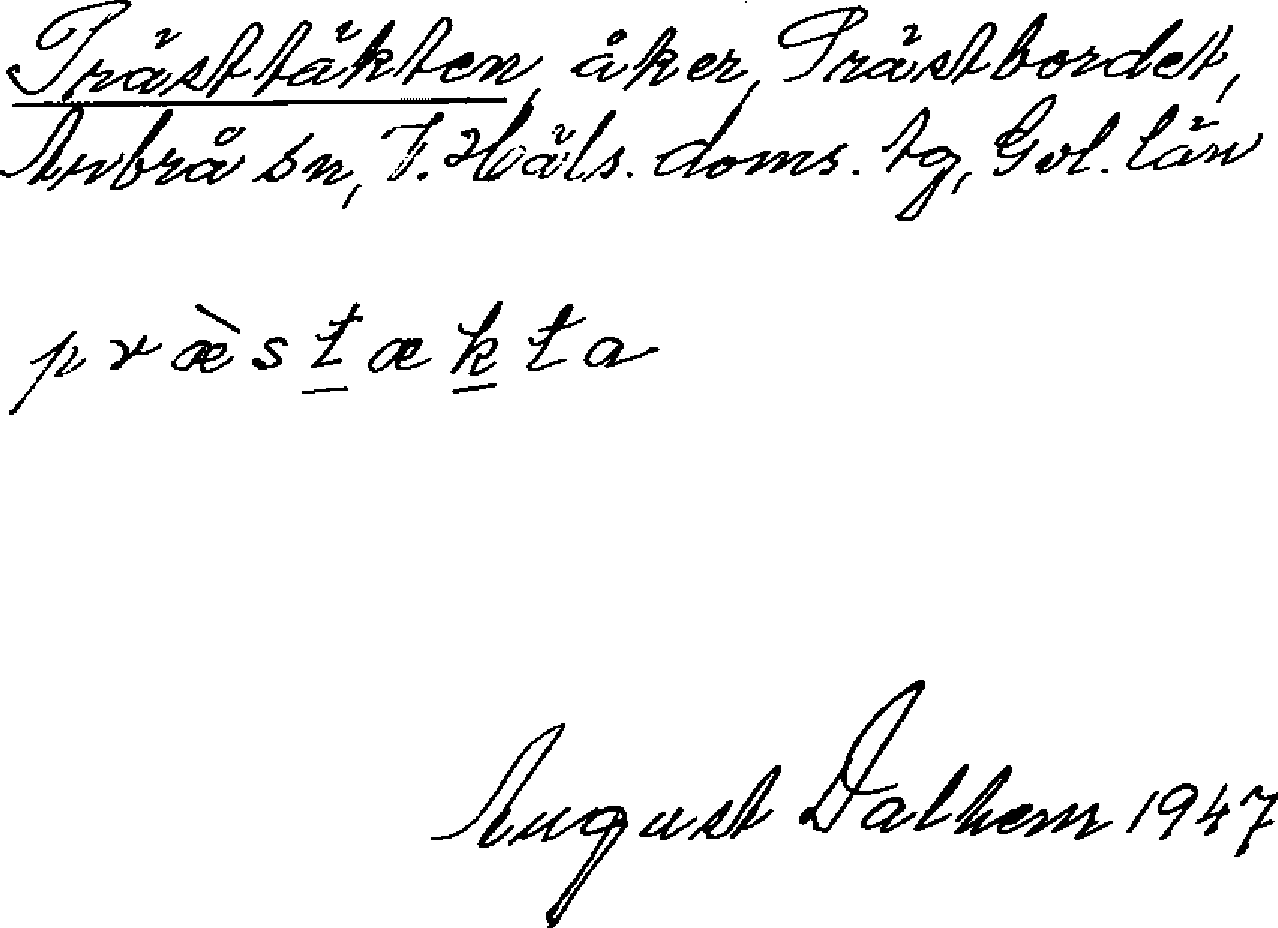 Prästtäkten, åker, Prästbordet,
Arbrå sn, V. Häls. doms. tg, Gvl. län
præ̀st̲æk̲ta
August Dalhem 1947